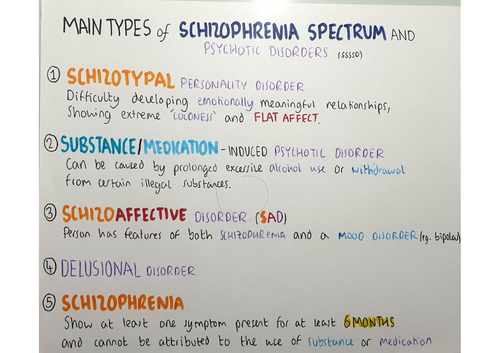 MAIN TYPES of SCHIZOPHRENIA SPECTRUM AND
PSYCHOTIC DISORDERS (SSSSD)
① SCHIZOTYPAL PERSONALITY DISORDER
Difficulty developing emotionally meaningful relationships,
showing extreme 'COLDNESS' and FLAT AFFECT.
② SUBSTANCE/MEDICATION-INDUCED PSYCHOTIC DISORDER
Can be caused by prolonged excessive alcohol use or withdrawal
from certain illegal substances.
③ SCHIZOAFFECTIVE DISORDER (SAD)
Person has features of both SCHIZOPHRENIA and a MOOD DISORDER (eg. bipolar)
④ DELUSIONAL DISORDER
⑤ SCHIZOPHRENIA
Show at least one symptom present for at least 6 MONTHS
and cannot be attributed to the use of substance or medication